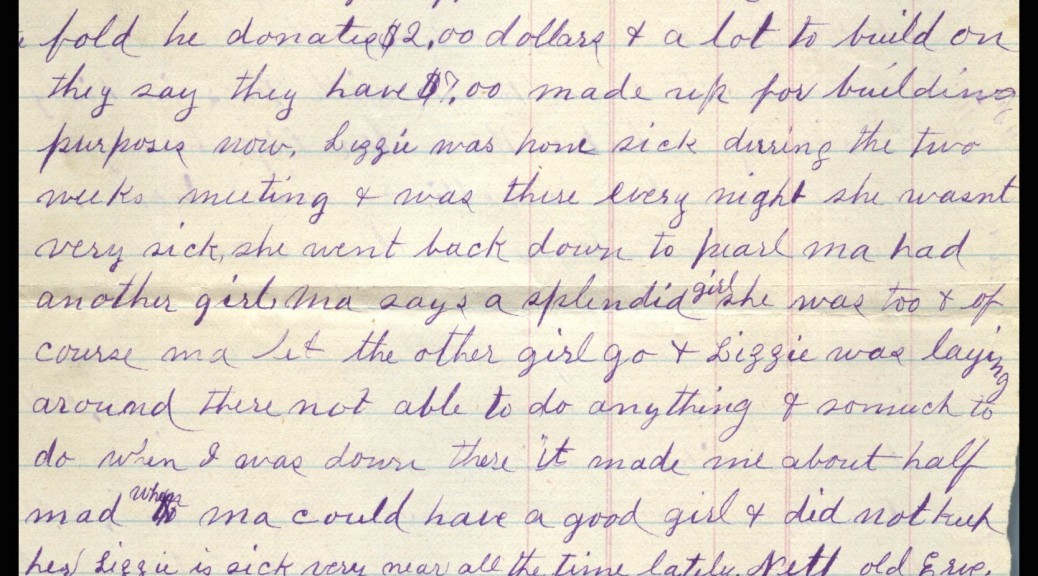 fold he donates $2.00 dollars & a lot to build on
they say they have $7.00 made up for building
purposes now. Lizzie was home sick durring the two
weeks meeting & was there every night she wasnt
very sick, she went back down to pearl ma had
another girl ma says a splendid girl she was too & of
course ma let the other girl go & Lizzie was laying
around there not able to do anything & somuch to
do when I was down there it made me about half
mad when ma could have a good girl & did not keep
her Lizzie is sick very near all the time lately. Nett old